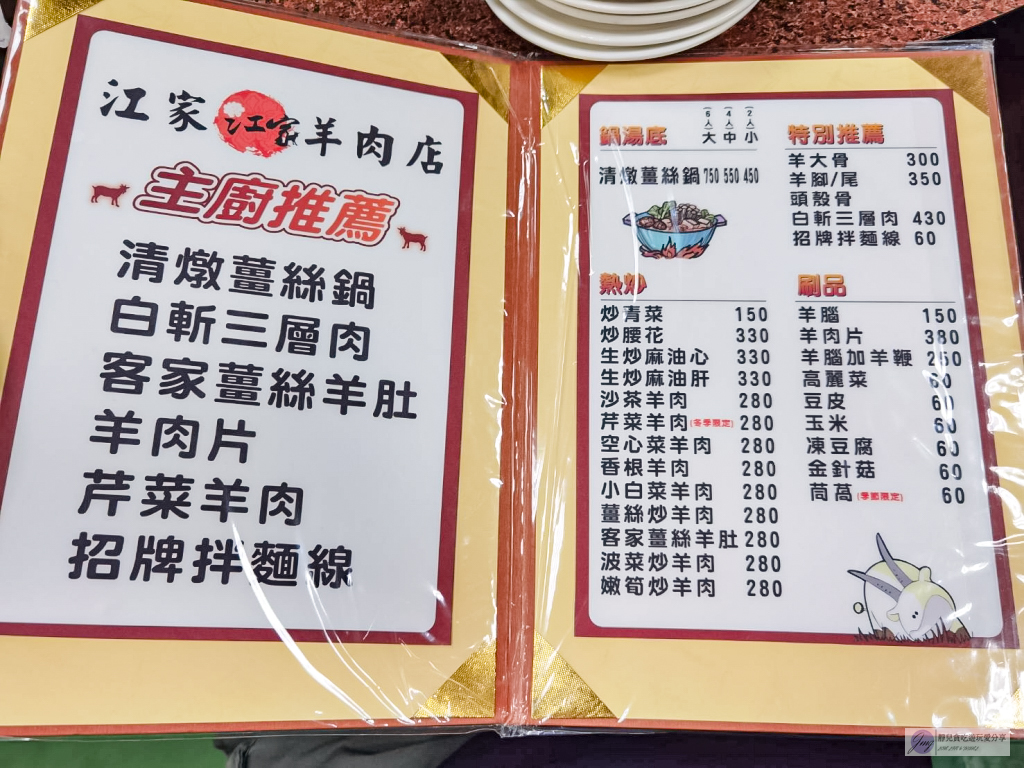 江家 江家 羊肉店
主廚推薦
清燉薑絲鍋
白斬三層肉
客家薑絲羊肚
羊肉片
芹菜羊肉
招牌拌麵線
鍋湯底 (6人)大 (4人)中 (2人)小
清燉薑絲鍋 750 550 450
熱炒
炒青菜 150
炒腰花 330
生炒麻油心 330
生炒麻油肝 330
沙茶羊肉 280
芹菜羊肉(冬季限定) 280
空心菜羊肉 280
香根羊肉 280
小白菜羊肉 280
薑絲炒羊肉 280
客家薑絲羊肚 280
波菜炒羊肉 280
嫩筍炒羊肉 280
特別推薦
羊大骨 300
羊腳/尾 350
頭殼骨
白斬三層肉 430
招牌拌麵線 60
刷品
羊腦 150
羊肉片 380
羊腦加羊鞭 250
高麗菜 60
豆皮 60
玉米 60
凍豆腐 60
金針菇 60
茼萵(季節限定) 60
靜兒貪吃遊玩愛分享